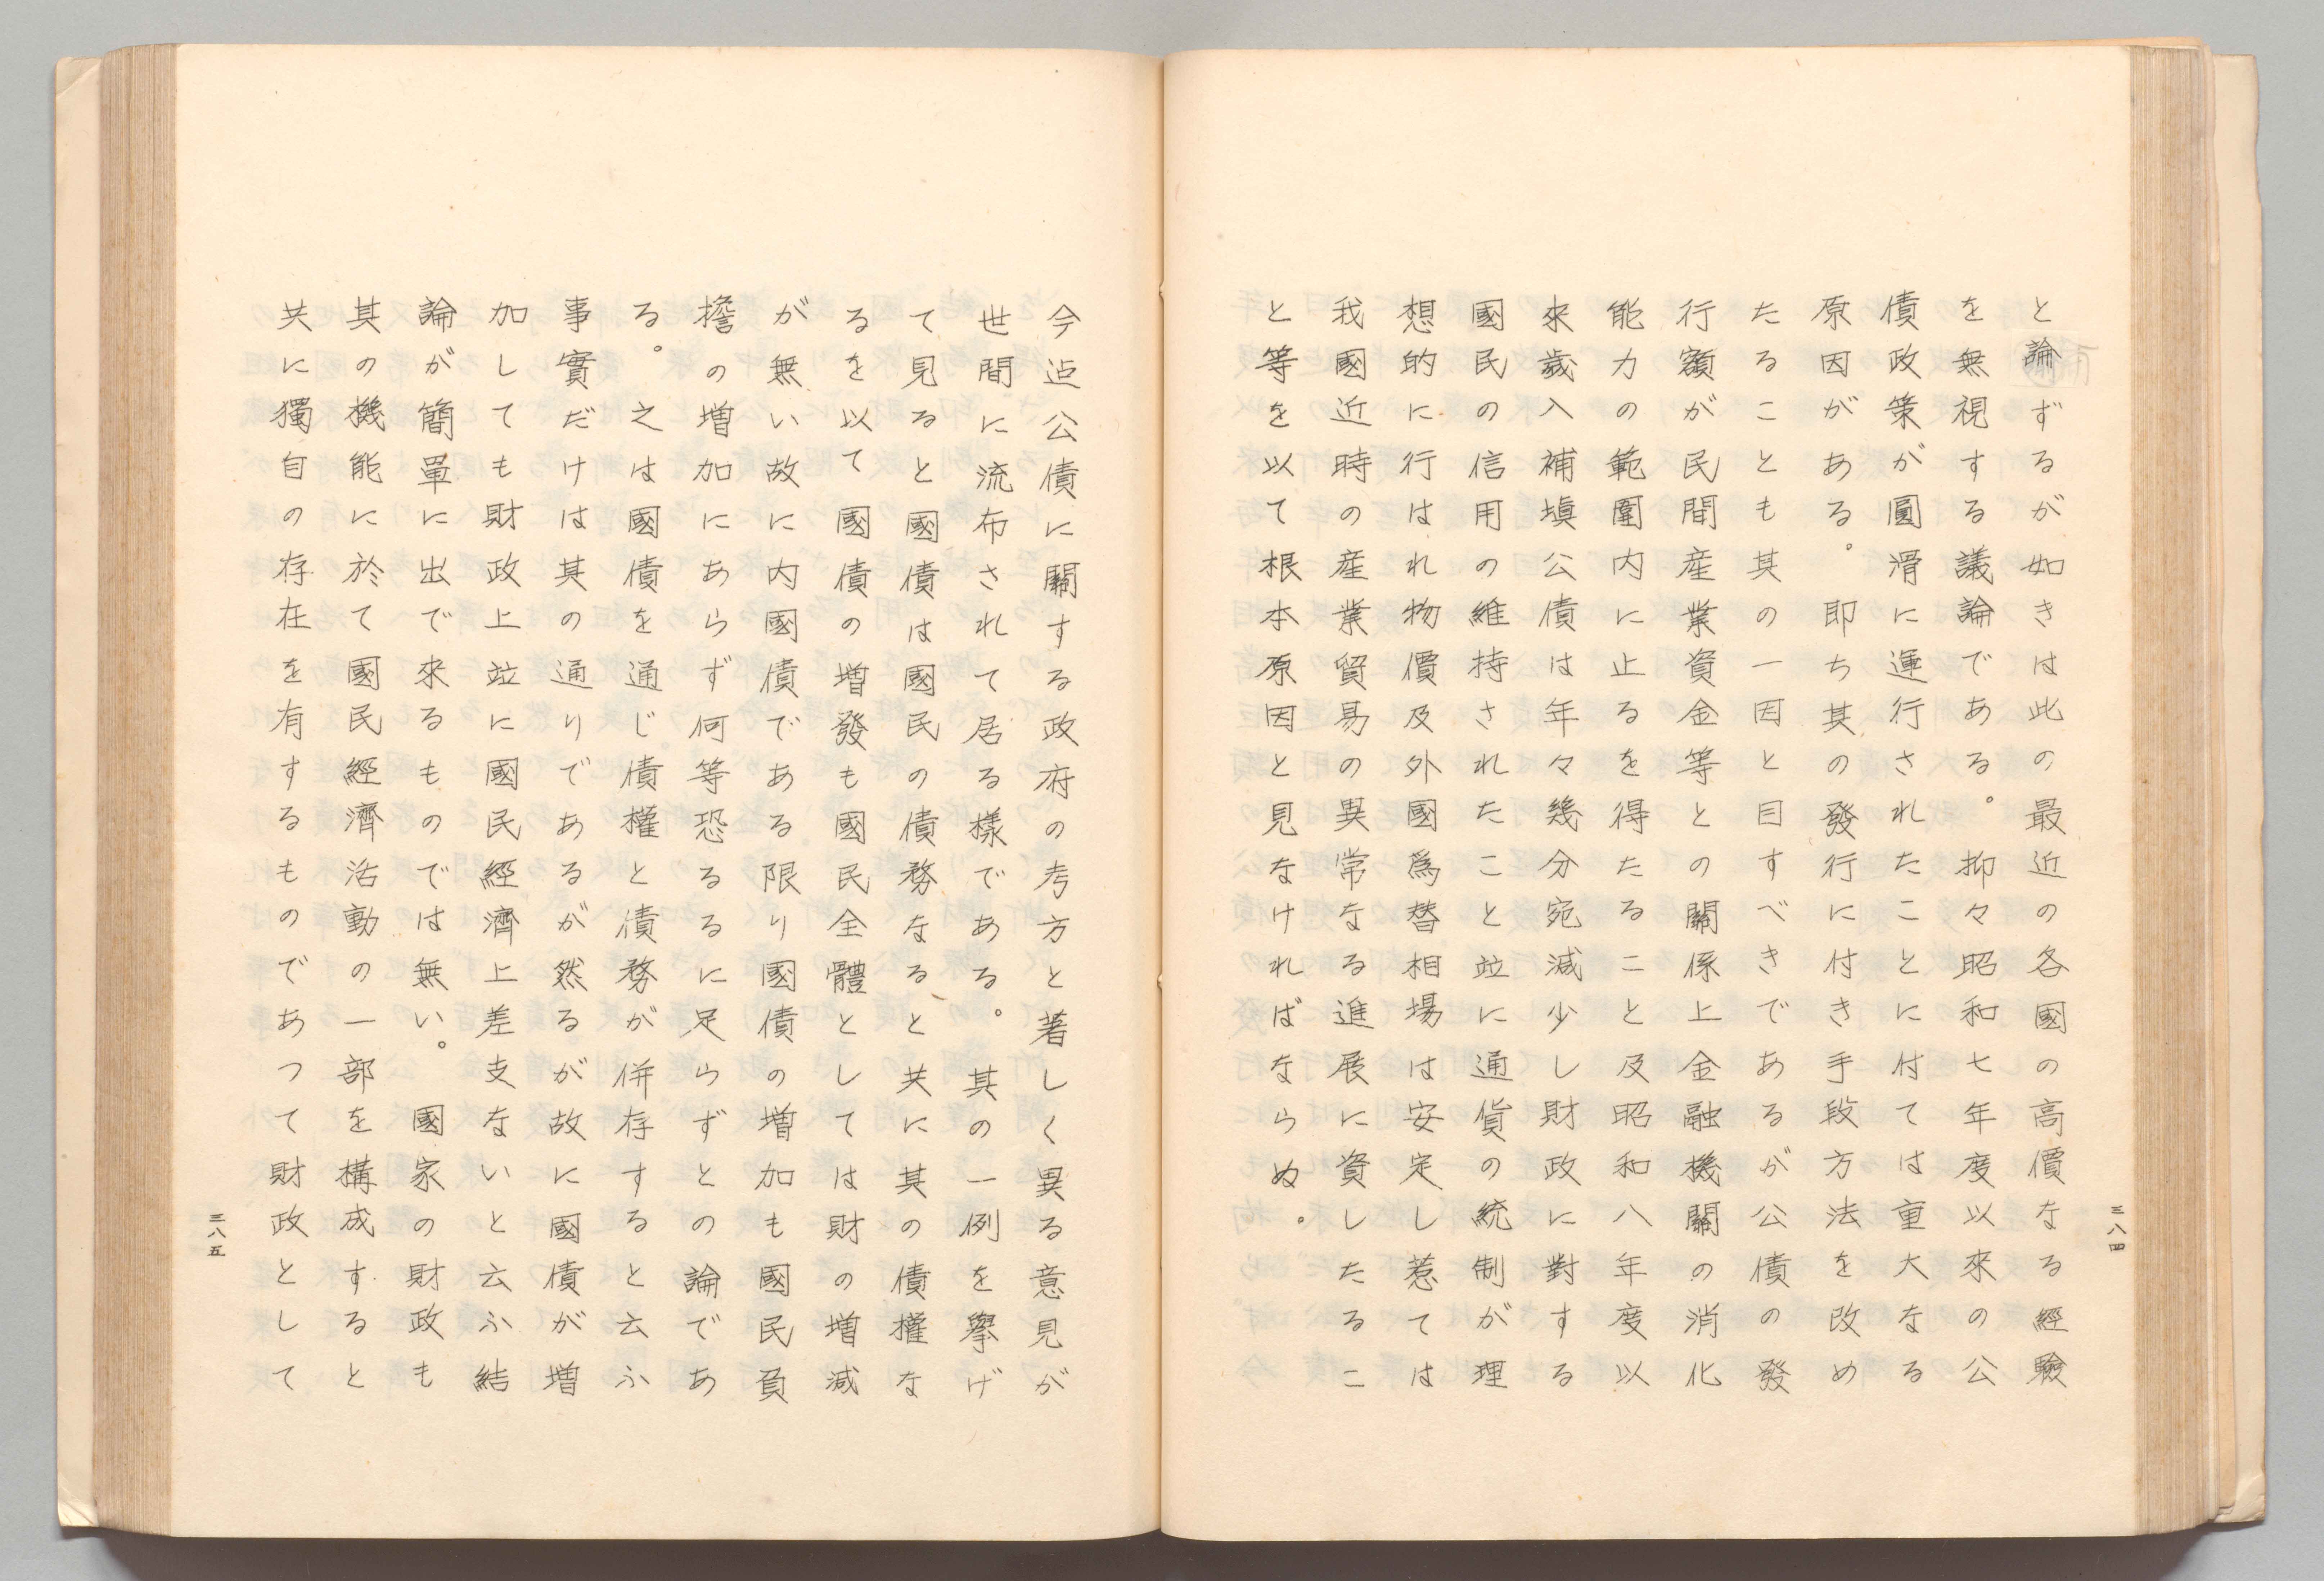 と論ずるが如きは此の最近の各國の高價なる經驗
を無視する議論である。抑々昭和七年度以來の公
債政策が圓滑に運行されたことに付ては重大なる
原因がある。即ち其の發行に付き手段方法を改め
たることも其の一因と目すべきであるが公債の發
行額が民間産業資金等との關係上金融機關の消化
能力の範圍内に止るを得たること及昭和八年度以
來歳入補塡公債は年々幾分宛減少し財政に對する
國民の信用の維持されたこと竝に通貨の統制が理
想的に行はれ物價及外國爲替相場は安定し惹ては
我國近時の産業貿易の異常なる進展に資したるこ
と等を以て根本原因と見なければならぬ。
三八四
今迠公債に關する政府の考方と著しく異る意見が
世間に流布されて居る樣である。其の一例を擧げ
て見ると國債は國民の債務なると共に其の債權な
るを以て國債の増發も國民全體としては財の増減
が無い故に内國債である限り國債の増加も國民負
擔の増加にあらず何等恐るるに足らずとの論であ
る。之は國債を通じ債權と債務が併存すると云ふ
事實だけは其の通りであるが然るが故に國債が増
加しても財政上竝に國民經濟上差支ないと云ふ結
論が簡單に出で來るものでは無い。國家の財政も
其の機能に於て國民經濟活動の一部を構成すると
共に獨自の存在を有するものであつて財政として
三八五